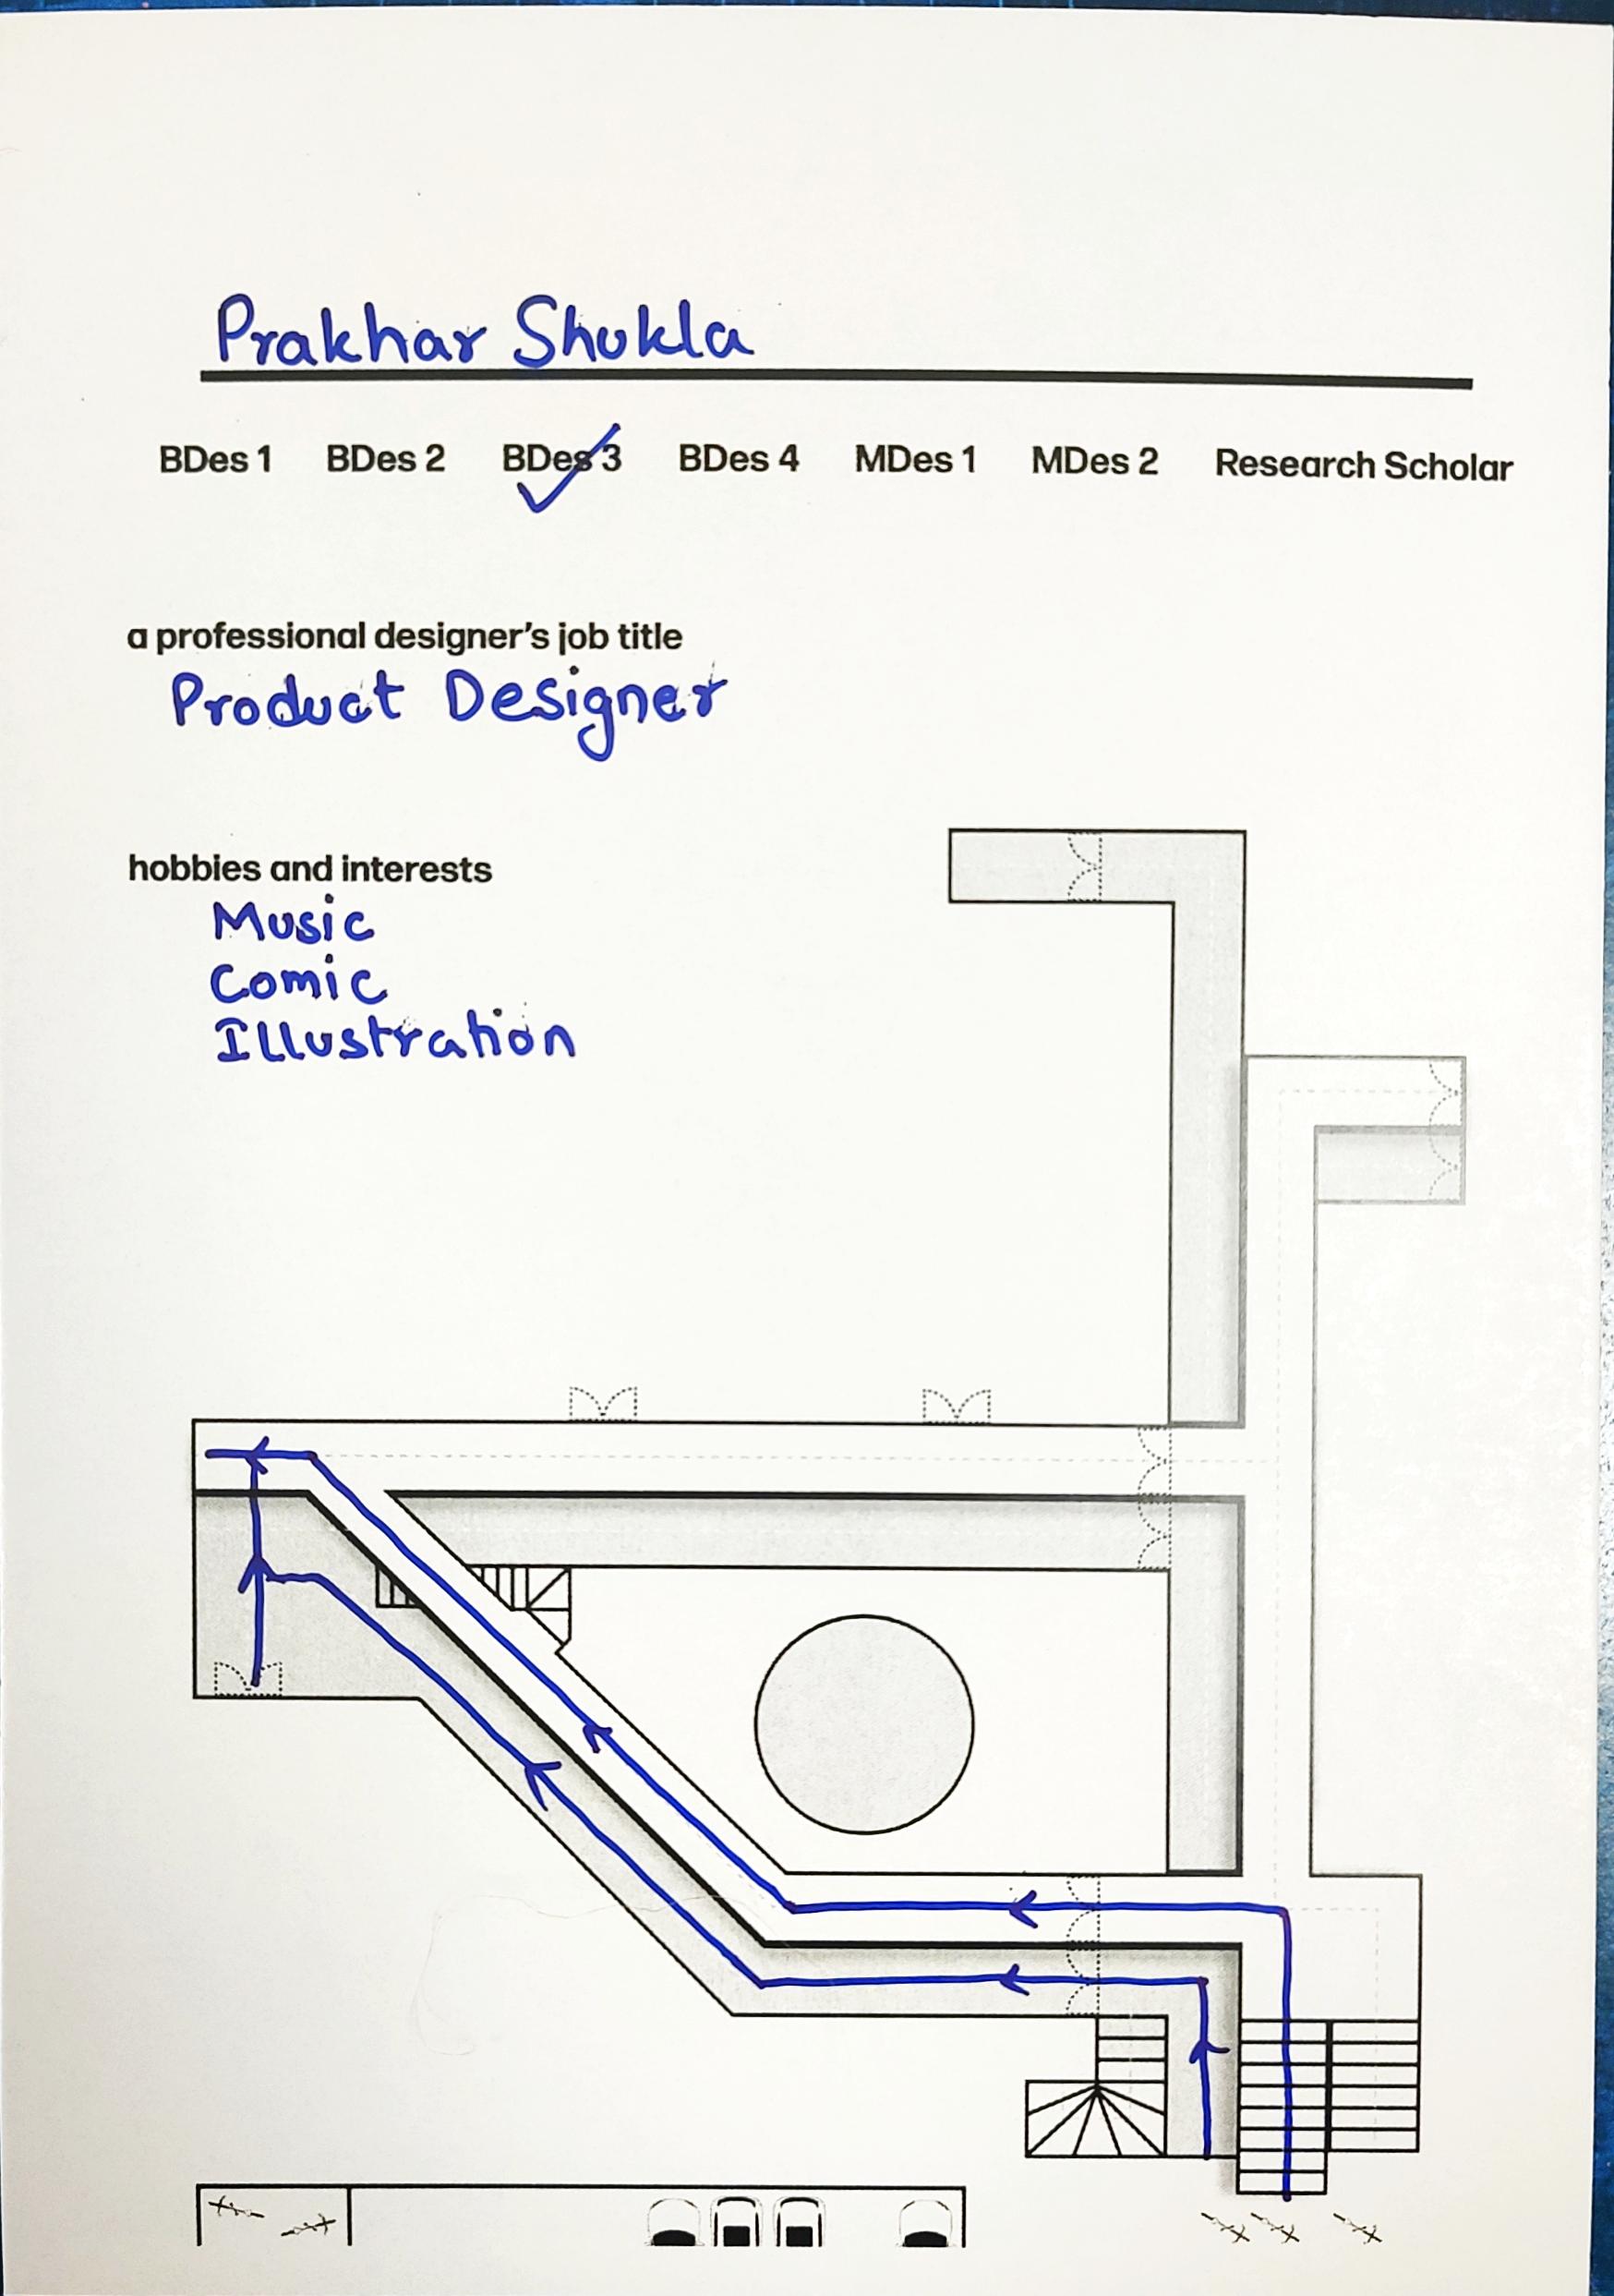 Prakhar Shukla
BDes 1 BDes 2 BDes 3 BDes 4 MDes 1 MDes 2 Research Scholar
a professional designer's job title
Product Designer
hobbies and interests
Music
Comic
Illustration